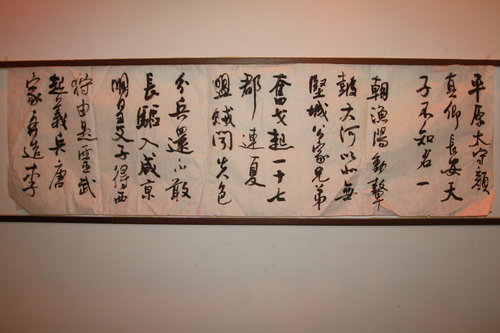 平原太守顏
真卿長安天
子不知名一
朝漁陽動鼙
鼓大河以北無
堅城公家兄弟
奮戈起一十七
郡連夏
盟賊聞失色
分兵還不敢
長驅入咸京
明皇父子得西
狩由是靈武
起義兵唐
家再造李